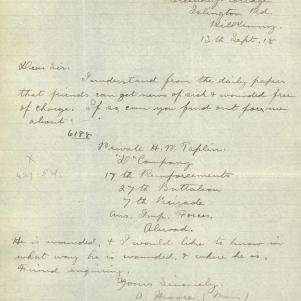 Cottage
Islington Rd.
Kilkenny.
13th Sept. 18
Dear Sir.
I understand from the daily papers
that friends can get news of sick & wounded free
of charge. If so can you find out for me
about:-
6188
Private H. W. Taplin.
"D" Company
X
17th Reinforcements
27th Battalion
7th Brigade
Aus. Imp. Forces.
Abroad.
He is wounded, & I would like to know in
what way he is wounded, & where he is.
Friend enquiring.
Yours Sincerely.
A. Moore (Mrs.)